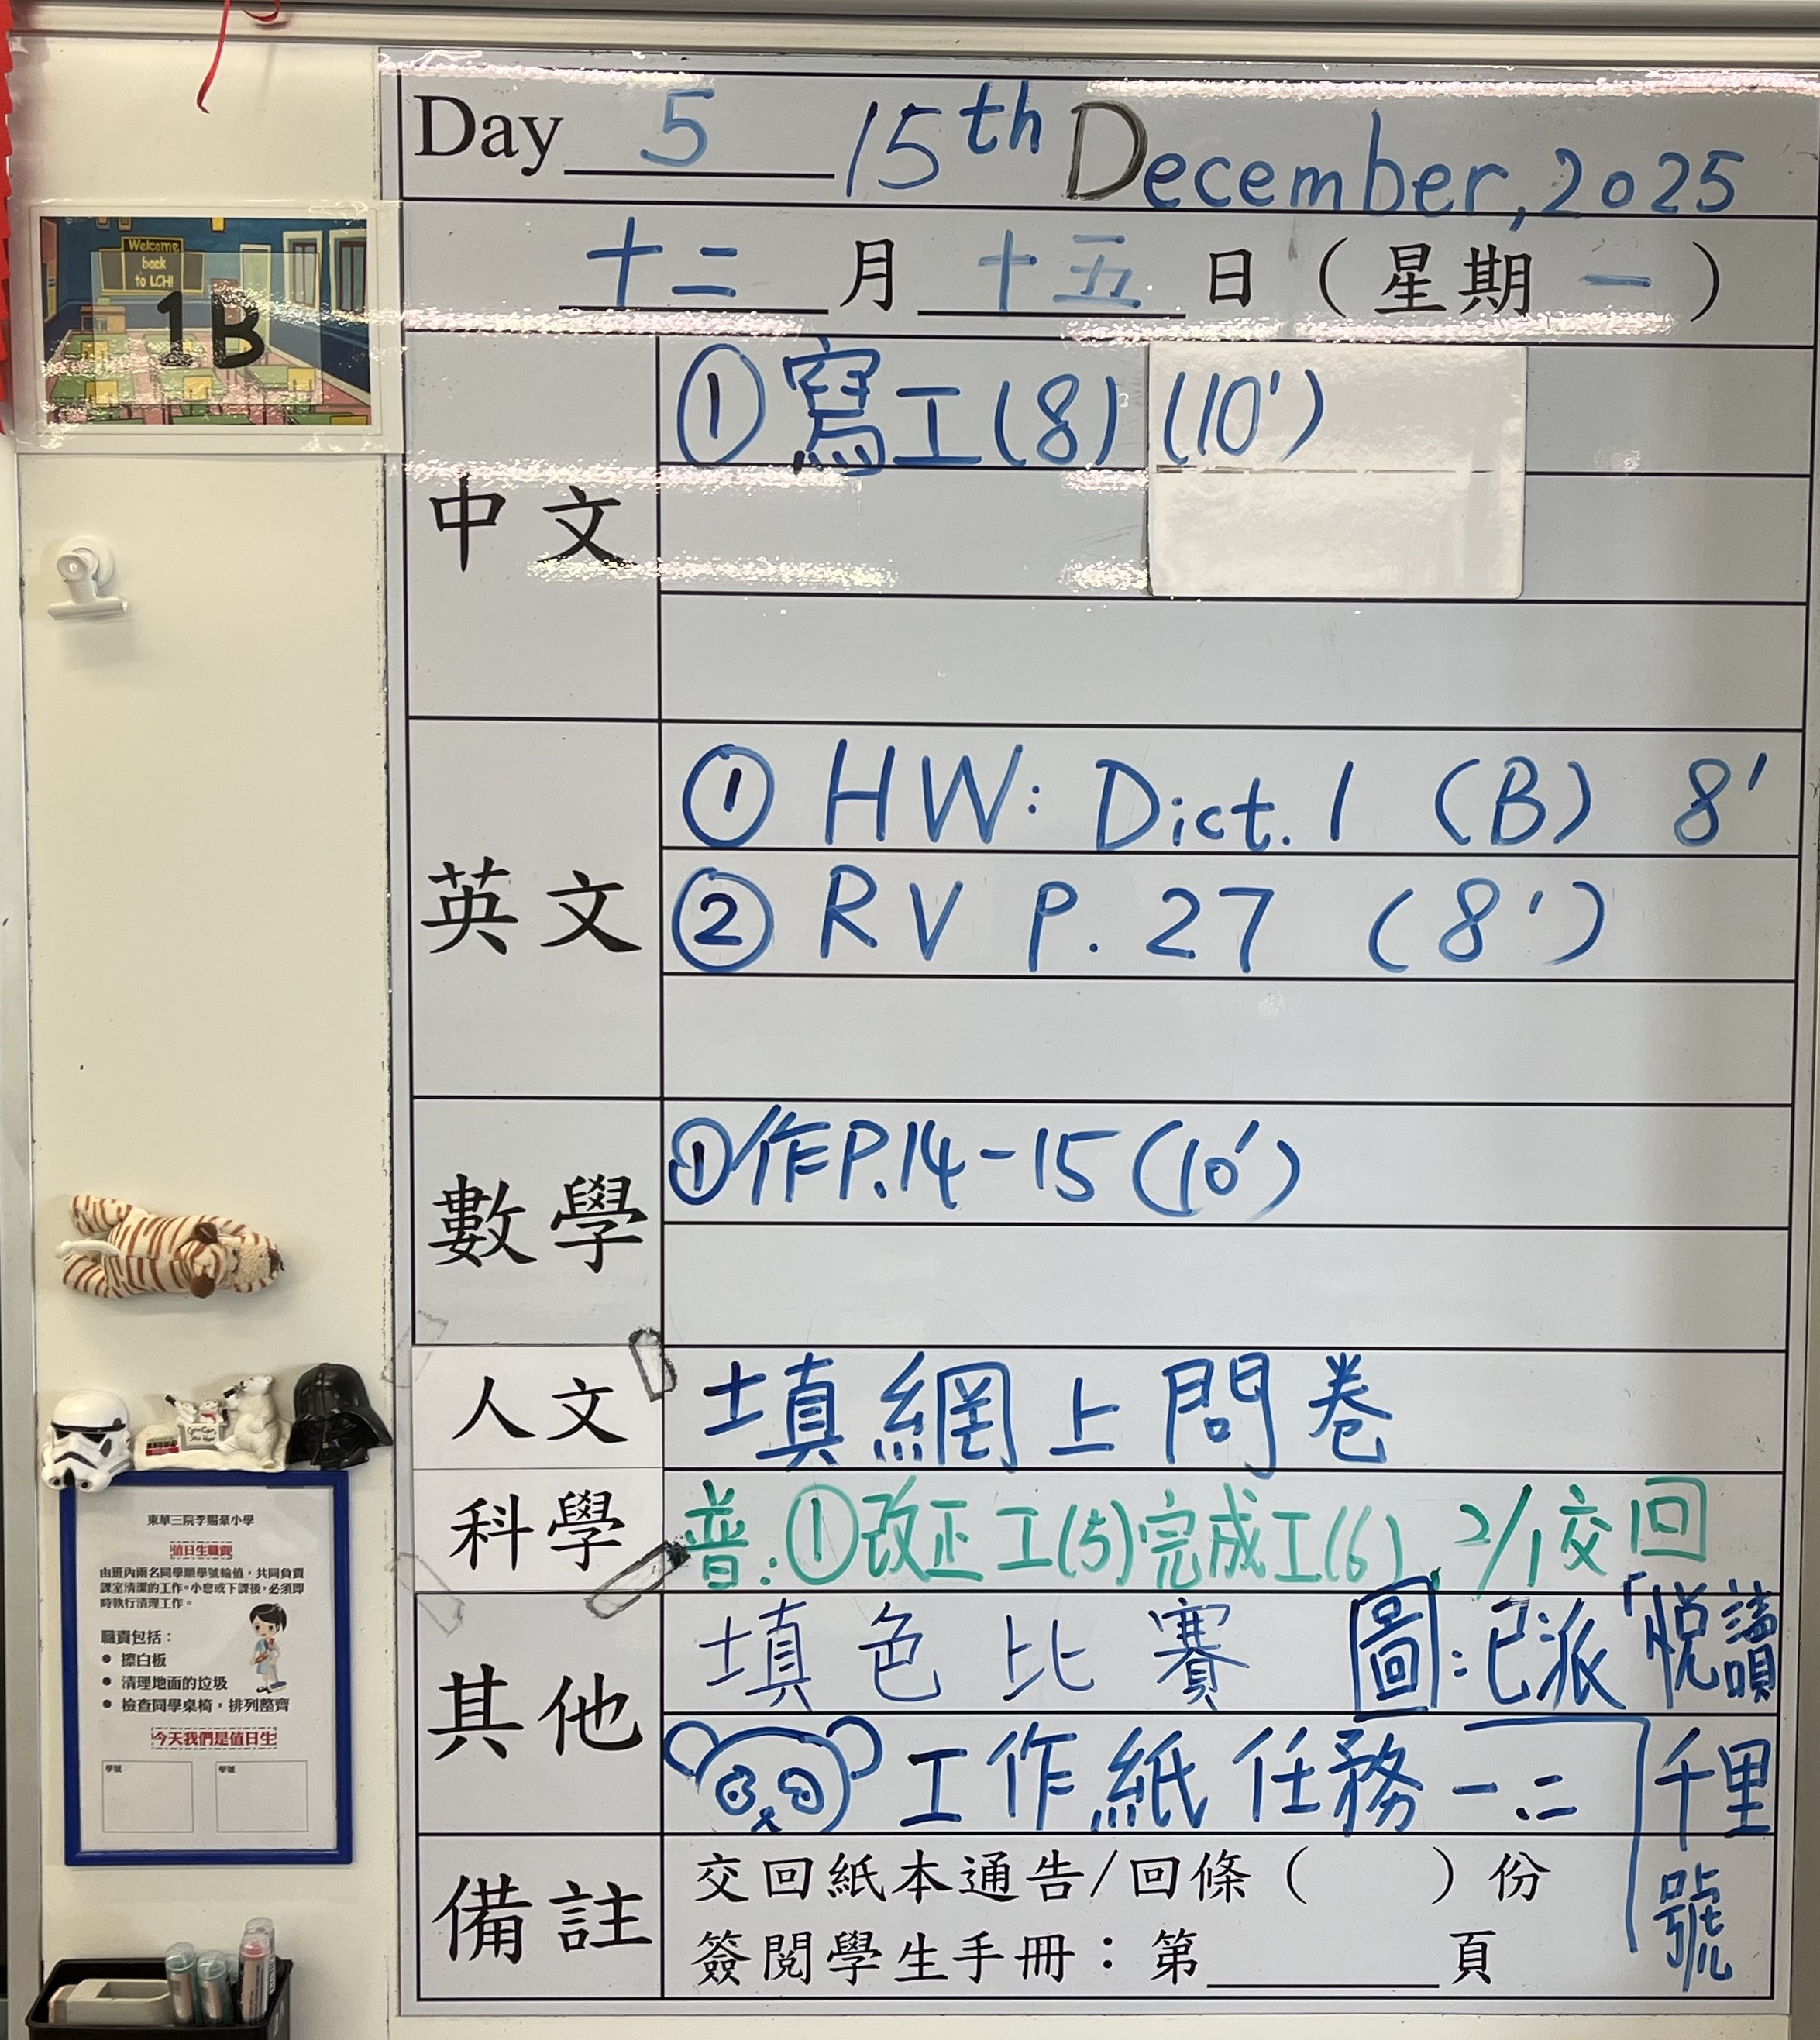 Day 5 15th December, 2025
十二月十五日（星期一）
Welcome
back
to LCH!
1B
中文
①寫工(8)(10')
英文
① HW: Dict. 1 (B) 8'
② RV P. 27 (8')
數學
①作P.14-15(10')
人文
填網上問卷
科學
普:①改正工(5)完成工(6), 2/1交回
其他
填色比賽 圖:已派「悅讀
千里
號
工作紙任務一.二
備註
交回紙本通告/回條（ ）份
簽閱學生手冊：第______頁
東華三院李賜豪小學
值日生職責
由班內兩名同學順學號輪值，共同負責
課室清潔的工作。小息或下課後，必須即
時執行清理工作。
職責包括：
• 擦白板
• 清理地面的垃圾
• 檢查同學桌椅，排列整齊
今天我們是值日生
學號 學號